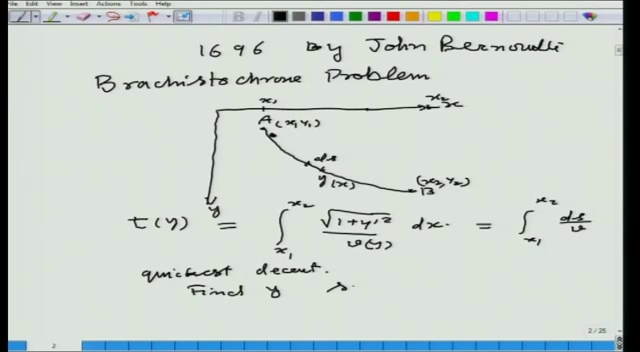 File Edit View Insert Actions Tools Help
1696 By John Bernoulli
Brachistochrone Problem
x₁ x₂ x
A (x₁, y₁)
ds
y(x)
(x₂, y₂)
B
y
t(y) = ∫_{x₁}^{x₂} √(1+y'²) / v(y) dx. = ∫_{x₁}^{x₂} ds/v
quickest decent.
Find y s.
2 / 25
2